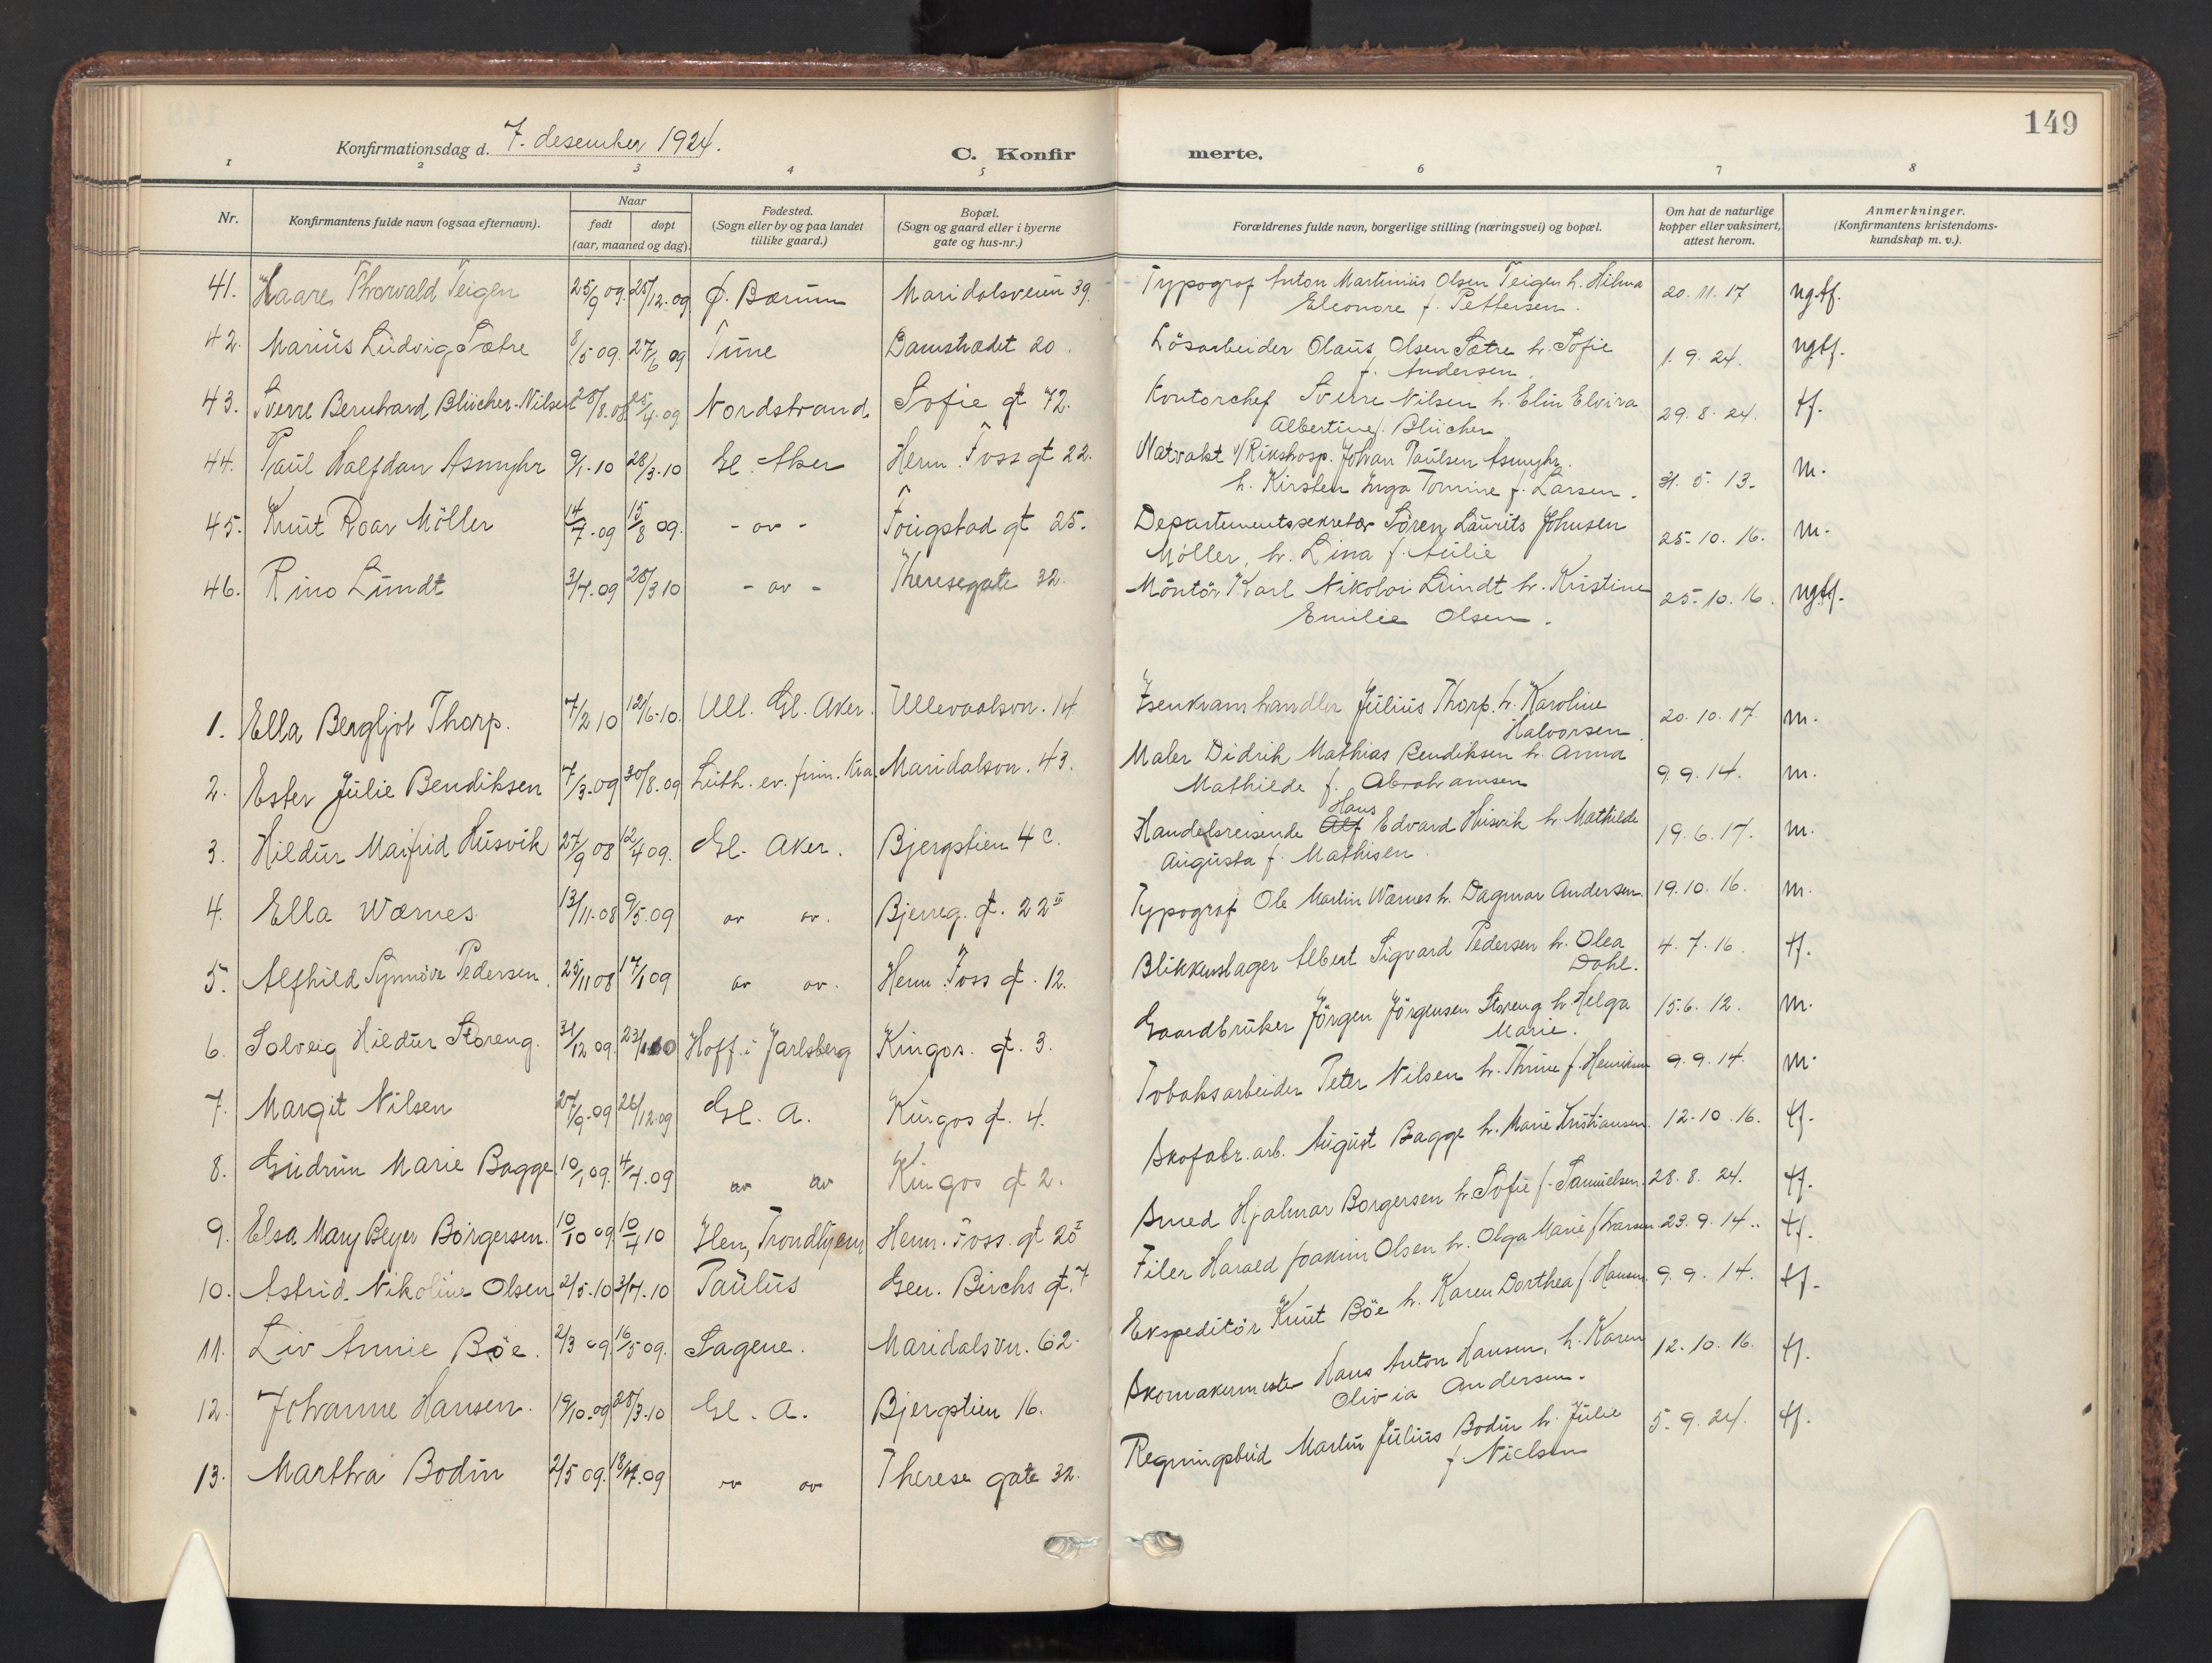 149
Konfirmationsdag d. 7. desember 1924.
C. Konfirmerte.
1 2 3 4 5 6 7 8
Nr.
Konfirmantens fulde navn (ogsaa efternavn).
Naar
født døpt
(aar, maaned og dag).
Fødested.
(Sogn eller by og paa landet
tillike gaard.)
Bopæl.
(Sogn og gaard eller i byerne
gate og hus-nr.)
Forældrenes fulde navn, borgerlige stilling (næringsvei) og bopæl.
Om hat de naturlige
kopper eller vaksinert,
attest herom.
Anmerkninger.
(Konfirmantens kristendoms-
kundskap m. v.).
41. Haare Thorvald Teigen 25/9 09. 25/12.09 Ø. Bærum Maridalsveien 39. Typograf Anton Martinius Olsen Teigen h. Hilma 20.11.17 ngtf.
Eleonore f. Pettersen.
42. Marius Ludvig Sætre 8/5 09. 27/6 09 Tune Damstrædet 20. Lösarbeider Olaus Olsen Sætre h. Sofie 1.9.24. ngtf.
f. Andersen.
43. Sverre Bernhard Blücher-Nilsen 28/8.08 25/4.09 Nordstrand Sofie gt 72. Kontorchef Sverre Nilsen h. Elin Elvira 29.8.24. tf.
Albertine f. Blücher
44. Paul Halfdan Asmyhr 9/1.10 28/3.10 Gl. Aker Herm. Foss gt 22. Natvakt v/Rikshosp. Johan Paulsen Asmyhr. 31.5.13. m.
h. Kirsten Inga Tomine f. Larsen.
45. Knut Roar Möller 14/7.09 15/8 09. - av - Fougstad gt 25. Departementssekretær Sören Laurits Johnsen 25.10.16. m.
Möller, h. Lina f. Aulie
46. Rino Lundt 3/4.09 28/3 10 - av - Theresegate 32. Montör Karl Nikolai Lundt h. Kristine 25.10.16. ngtf.
Emilie Olsen.
1. Ella Bergljot Thorp. 7/2 10 12/6.10. Ull. Gl. Aker. Ullevaalsvn. 14 Isenkramhandler Julius Thorp. h. Karoline 20.10.17. m.
Halvorsen.
2. Ester Julie Bendiksen 7/3.09 30/8.09 Luth. ev. frim. Kra. Maridalsvn. 43. Maler Didrik Mathias Bendiksen h. Anna 9.9.14. m.
Mathilde f. Abrahamsen
3. Hildur Maifrid Husvik 27/9 08 12/4 09. Gl. Aker. Bjergstien 4 c. Handelsreisende Alf Hans Edvard Husvik h. Mathilde 19.6.17. m.
Augusta f. Mathisen.
4. Ella Wærnes 13/11.08 9/5.09 av av. Bjerreg. gt. 22 III Typograf Ole Martin Wærnes h. Dagmar Andersen. 19.10.16. m.
5. Alfhild Synnöve Pedersen. 25/11 08 17/1 09 av av. Herm. Foss gt. 12. Blikkenslager Albert Sigvard Pedersen h. Olea 4.7.16. tf.
Dahl.
6. Solveig Hildur Storeng. 31/12 09. Hoff i Jarlsberg Kingos. gt. 3. Gaardbruker Jörgen Jörgensen Storeng h. Helga 15.6.12. m.
Marie.
7. Margit Nilsen 27/9.09 26/12.09 Gl. A. Kingos gt. 4. Tobaksarbeider Peter Nilsen h. Thrine f. Henriksen 9.9.14. m.
8. Gudrun Marie Bagge. 10/1 09. 4/4.09 av av Kingos gt 2. Skofabr. arb. August Bagge h. Marie Kristiansen. 12.10.16. tf.
9. Elsa Mary Beyer Borgersen. 10/10 09 10/4 10 Ilen, Trondhjem Herm. Foss. gt 20 I Smed Hjalmar Borgersen h. Sofie f. Samuelsen. 28.8.24. tf.
10. Astrid Nikoline Olsen 2/5.10 3/7.10 Paulus Gen. Birchs gt. 7 Filer Harald Joakim Olsen h. Olga Marie f Larsen 23.9.14.. tf.
11. Liv Annie Böe. 2/3 09. 16/5 09. Sagene. Maridalsvn. 62. Ekspeditör Knut Böe h. Karen Dorthea f. Hansen 9.9.14. tf.
12. Johanne Hansen. 19/10.09 28/3.10 Gl. A. Bjergstien 16. Skomakermester Hans Anton Hansen, h. Karen 12.10.16. tf.
Olivia Andersen.
13. Martha Bodin 2/5 09. 18/7.09 av av Therese gate 32. Regningsbud Martin Julius Bodin h. Julie 5.9.24. tf.
f Nielsen